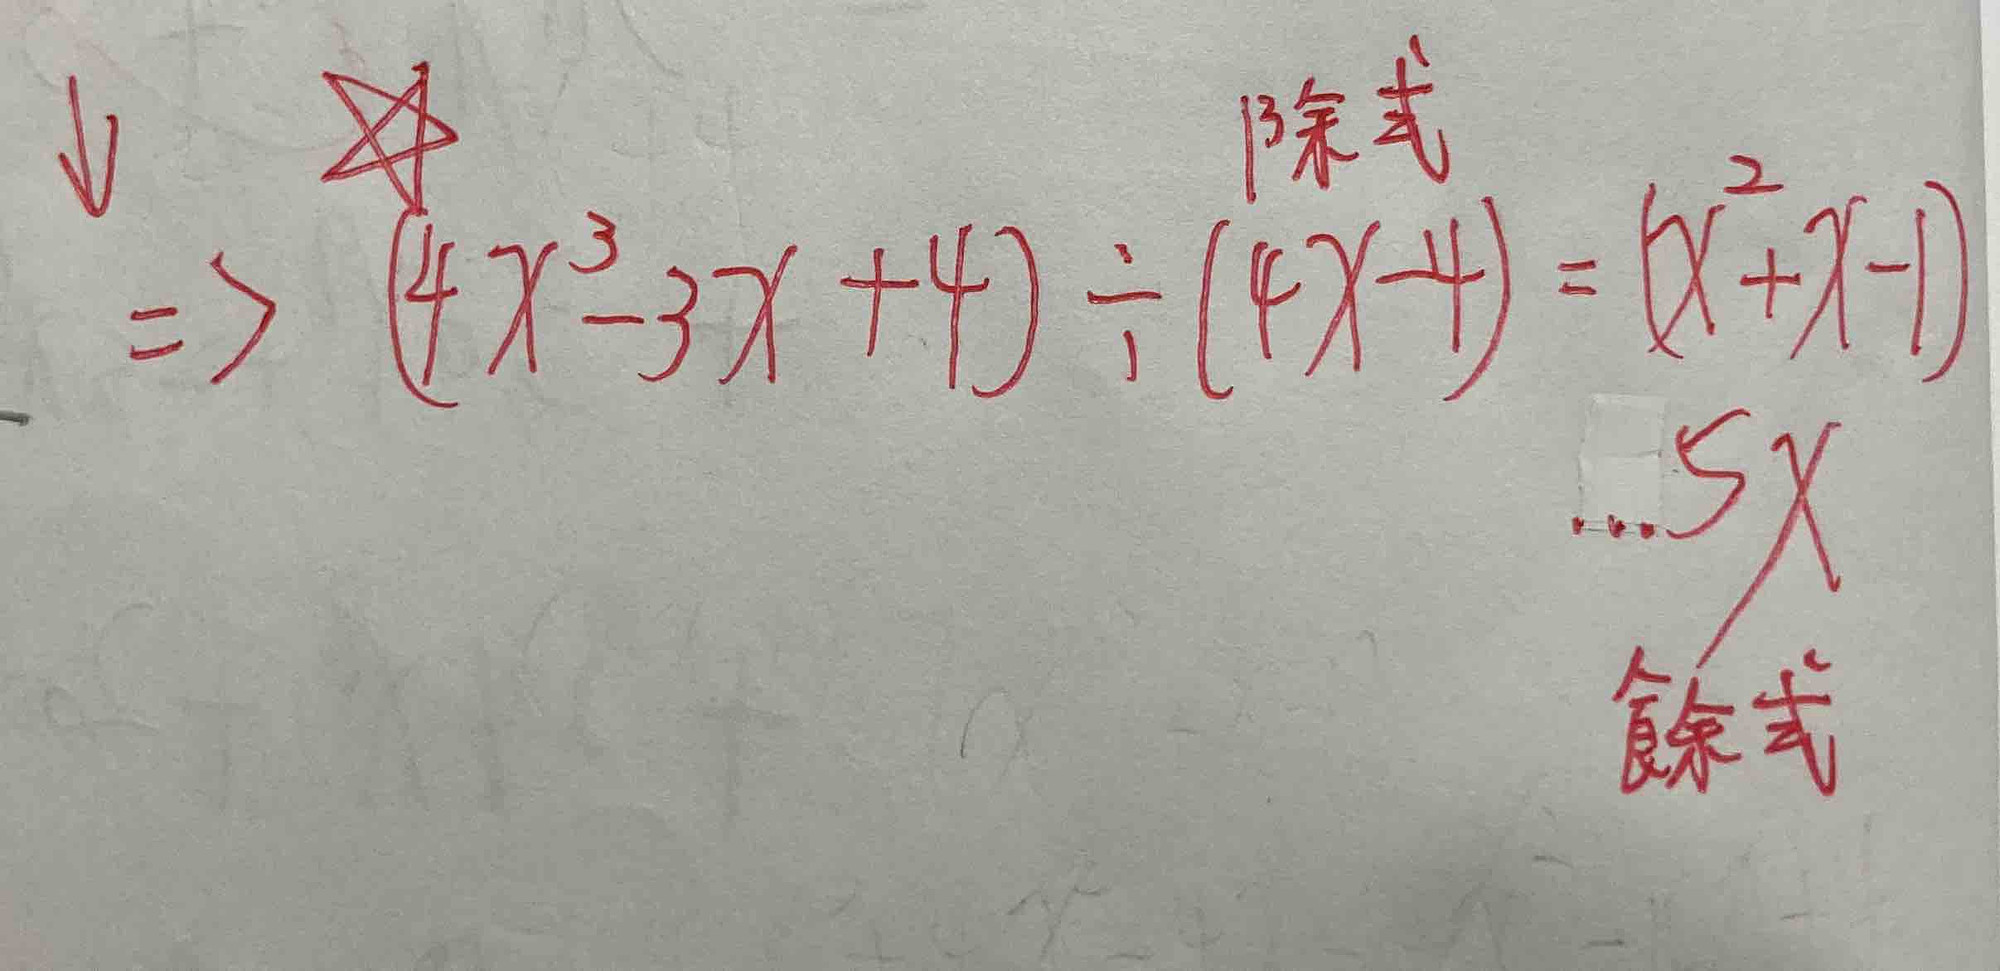 ↓ ☆ 除式
=> (4x³-3x+4)÷(4x-4)=(x²+x-1)
...5x
餘式